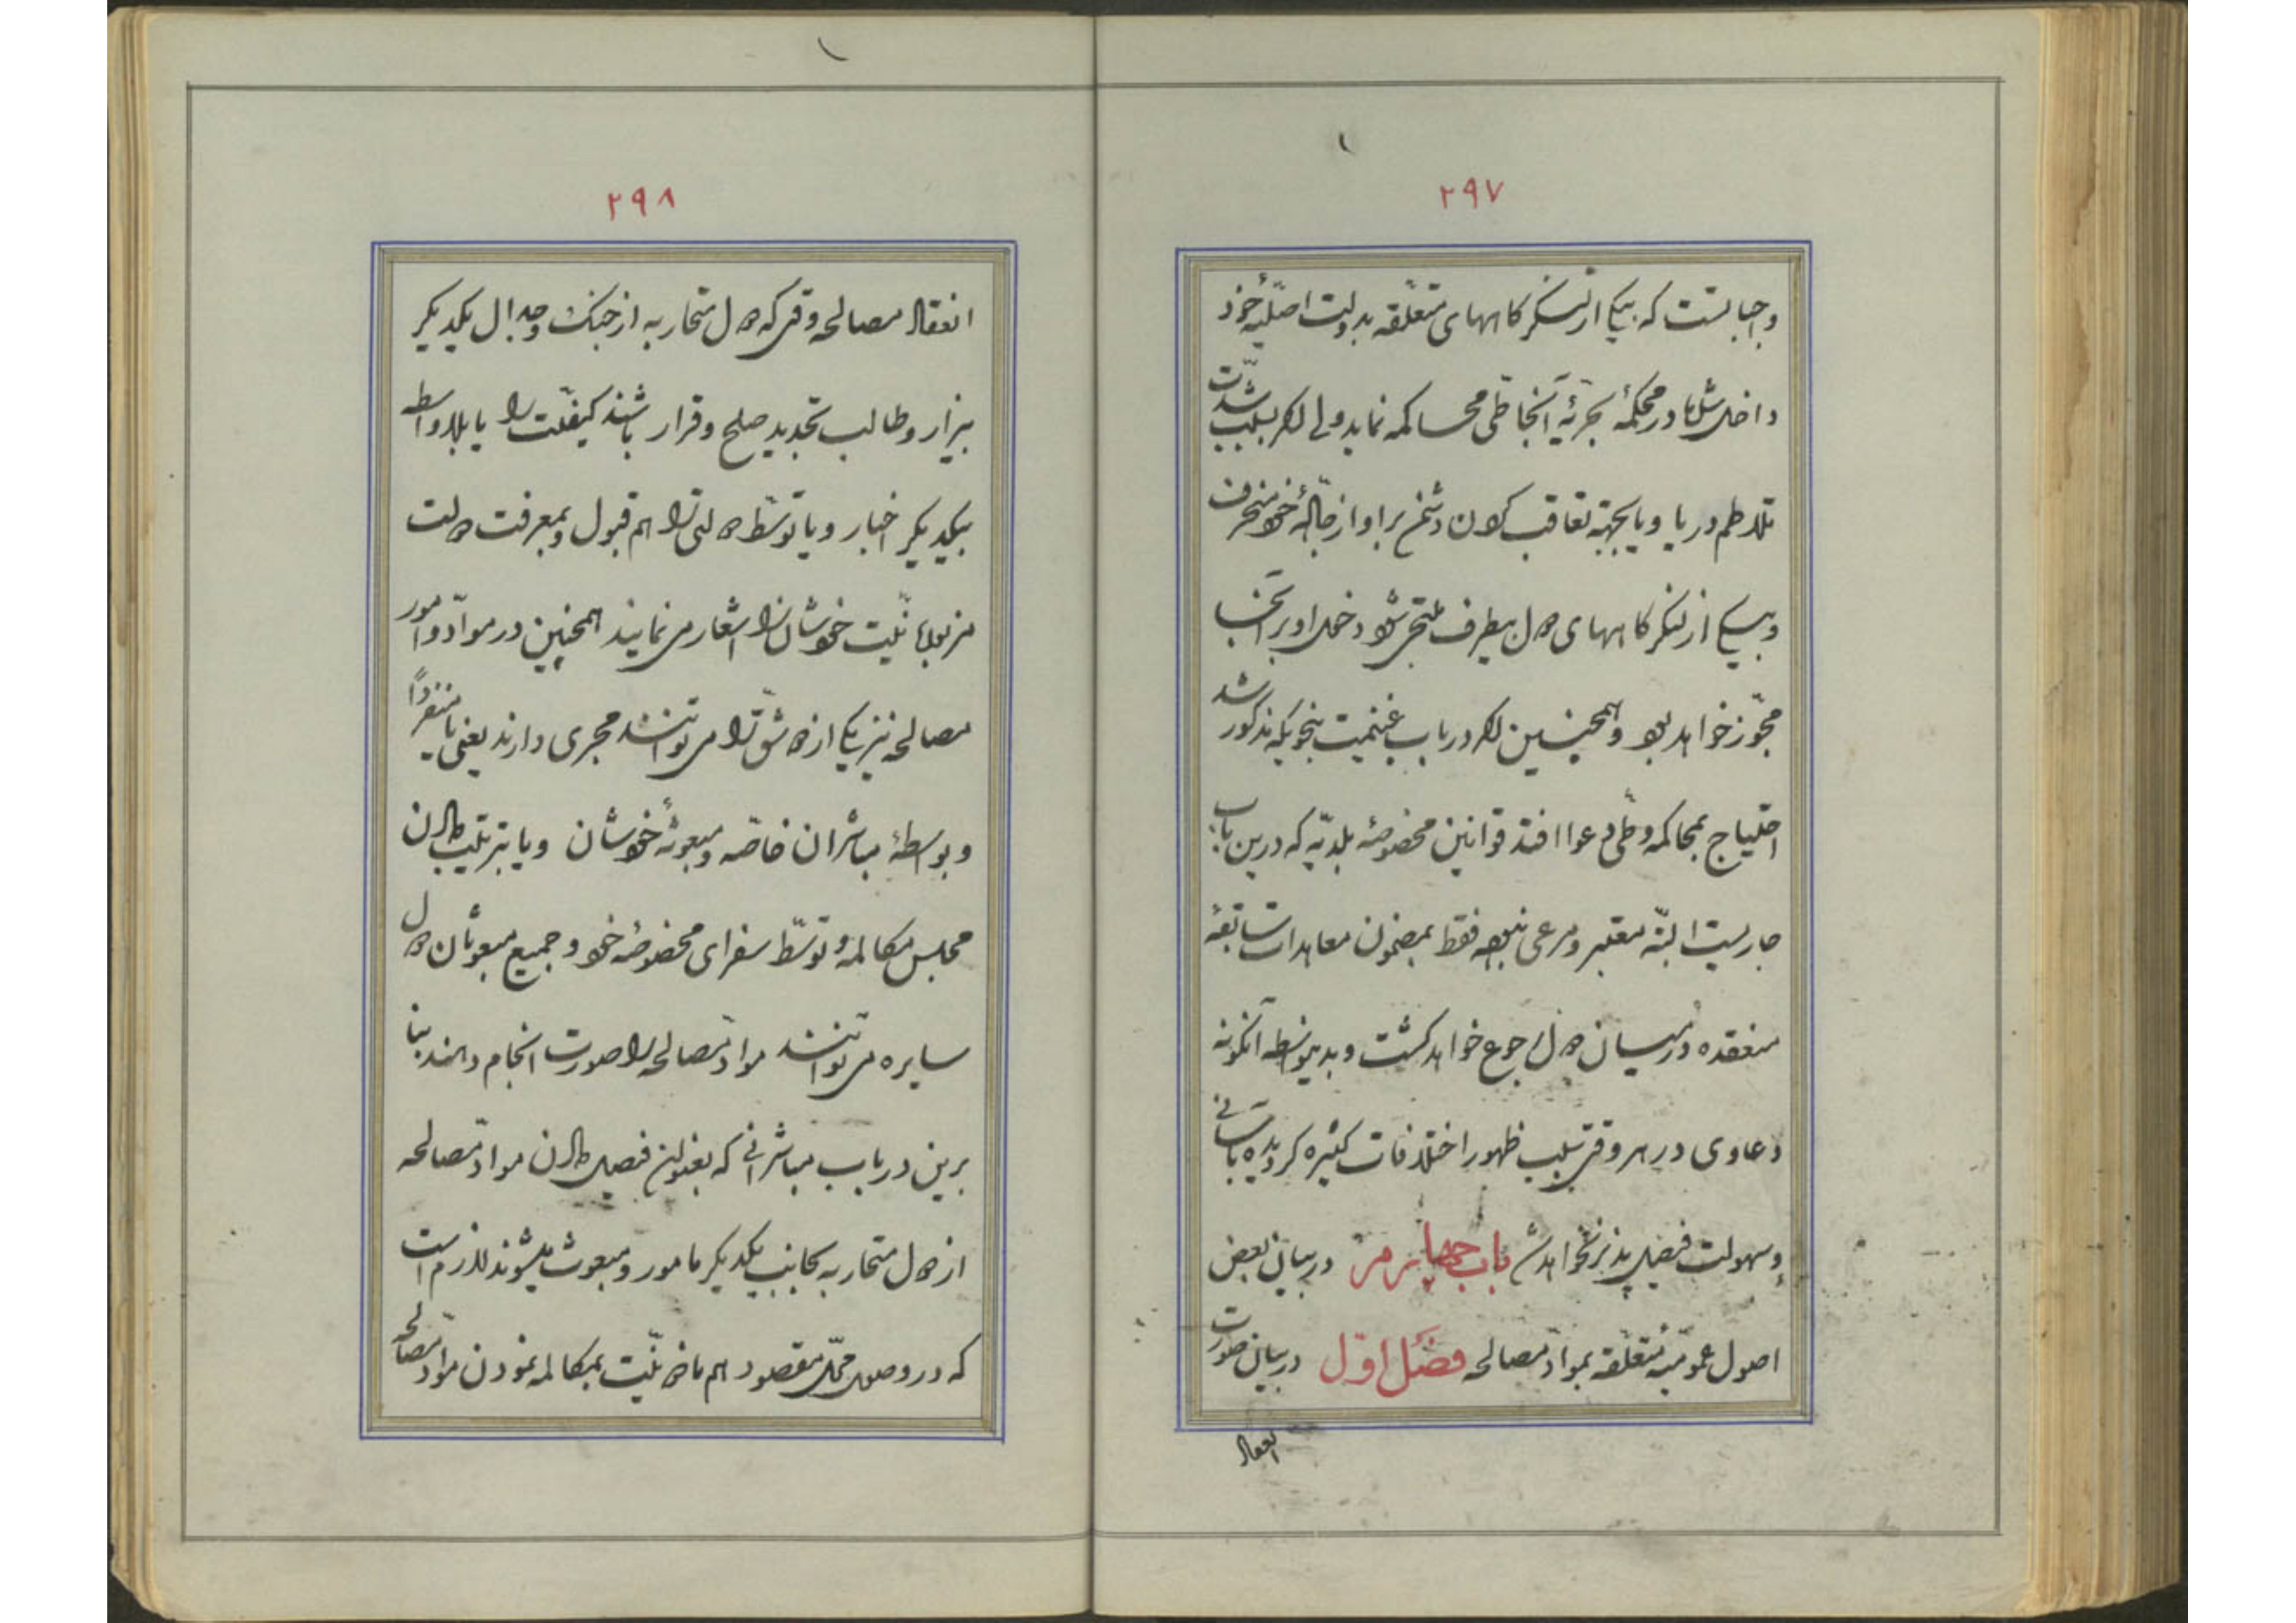 ۲۹۷
واجبست که بیکی از لنکرکاههای متعلّقه بدولت اصلیّهٔ خود
داخل شده تا در محکمهٔ بحریّهٔ آنجا طیّ محاکمه نماید ولی اگر بسبب شدّت
تلاطم دریا و یا بجهتهٔ تعاقب کردن دشمن بر او از جادّهٔ خود منحرف
و بیکی از لنکرکاههای دول بیطرف ملتجی شود دخول او بر آنجا
مجوّز خواهد بود و همچنین اکر در باب غنیمت بنحویکه مذکور شد
احتیاج بمحاکمه و طیّ دعوا افتد قوانین مخصوصهٔ بلدیّه که درین باب
جاریست البتّه معتبر و مرعی نبوده فقط بمضمون معاهدات سابقهٔ
منعقده در میان دول رجوع خواهد کشت و بدینواسطه آنکونه
دعاوی در هر وقتی سبب ظهور اختلافات کثیره کردیده بآسانی
و سهولت فیصل پذیر نخواهد شد باب چهارم در بیان بعض
اصول عمومیّهٔ متعلّقه بموادّ مصالحه فصل اوّل در بیان صورت
انعقاد
۲۹۸
انعقاد مصالحه وقتی که دول متحاربه از جنک و جدال یکدیکر
بیزار و طالب تجدید صلح و قرار باشند کیفیّت را یا بلاواسطه
بیکدیکر اخبار و یا توسّط دولتی را هم قبول و بمعرفت دولت
مزبوره نیّت خودشان را اشعار می نمایند همچنین در موادّ و امور
مصالحه نیز یکی از دو شقّ را می توانند مجری دارند یعنی یا منفرداً
و بواسطهٔ مباشران خاصّه و مبعوثهٔ خودشان و یا بترتیب دادن
مجلس مکالمه و توسّط سفرای مخصوصهٔ خود و جمیع مبعوثان دول
سایره می توانند موادّ مصالحه را صورت انجام دهند بنا
برین در باب مباشرانی که بعنوان فیصل دادن موادّ مصالحه
از دول متحاربه بجانب یکدیکر مامور و مبعوث میشوند لازم است
که در وصول محلّ مقصود هم نیّت بمکالمه نمودن موادّ مصالحه